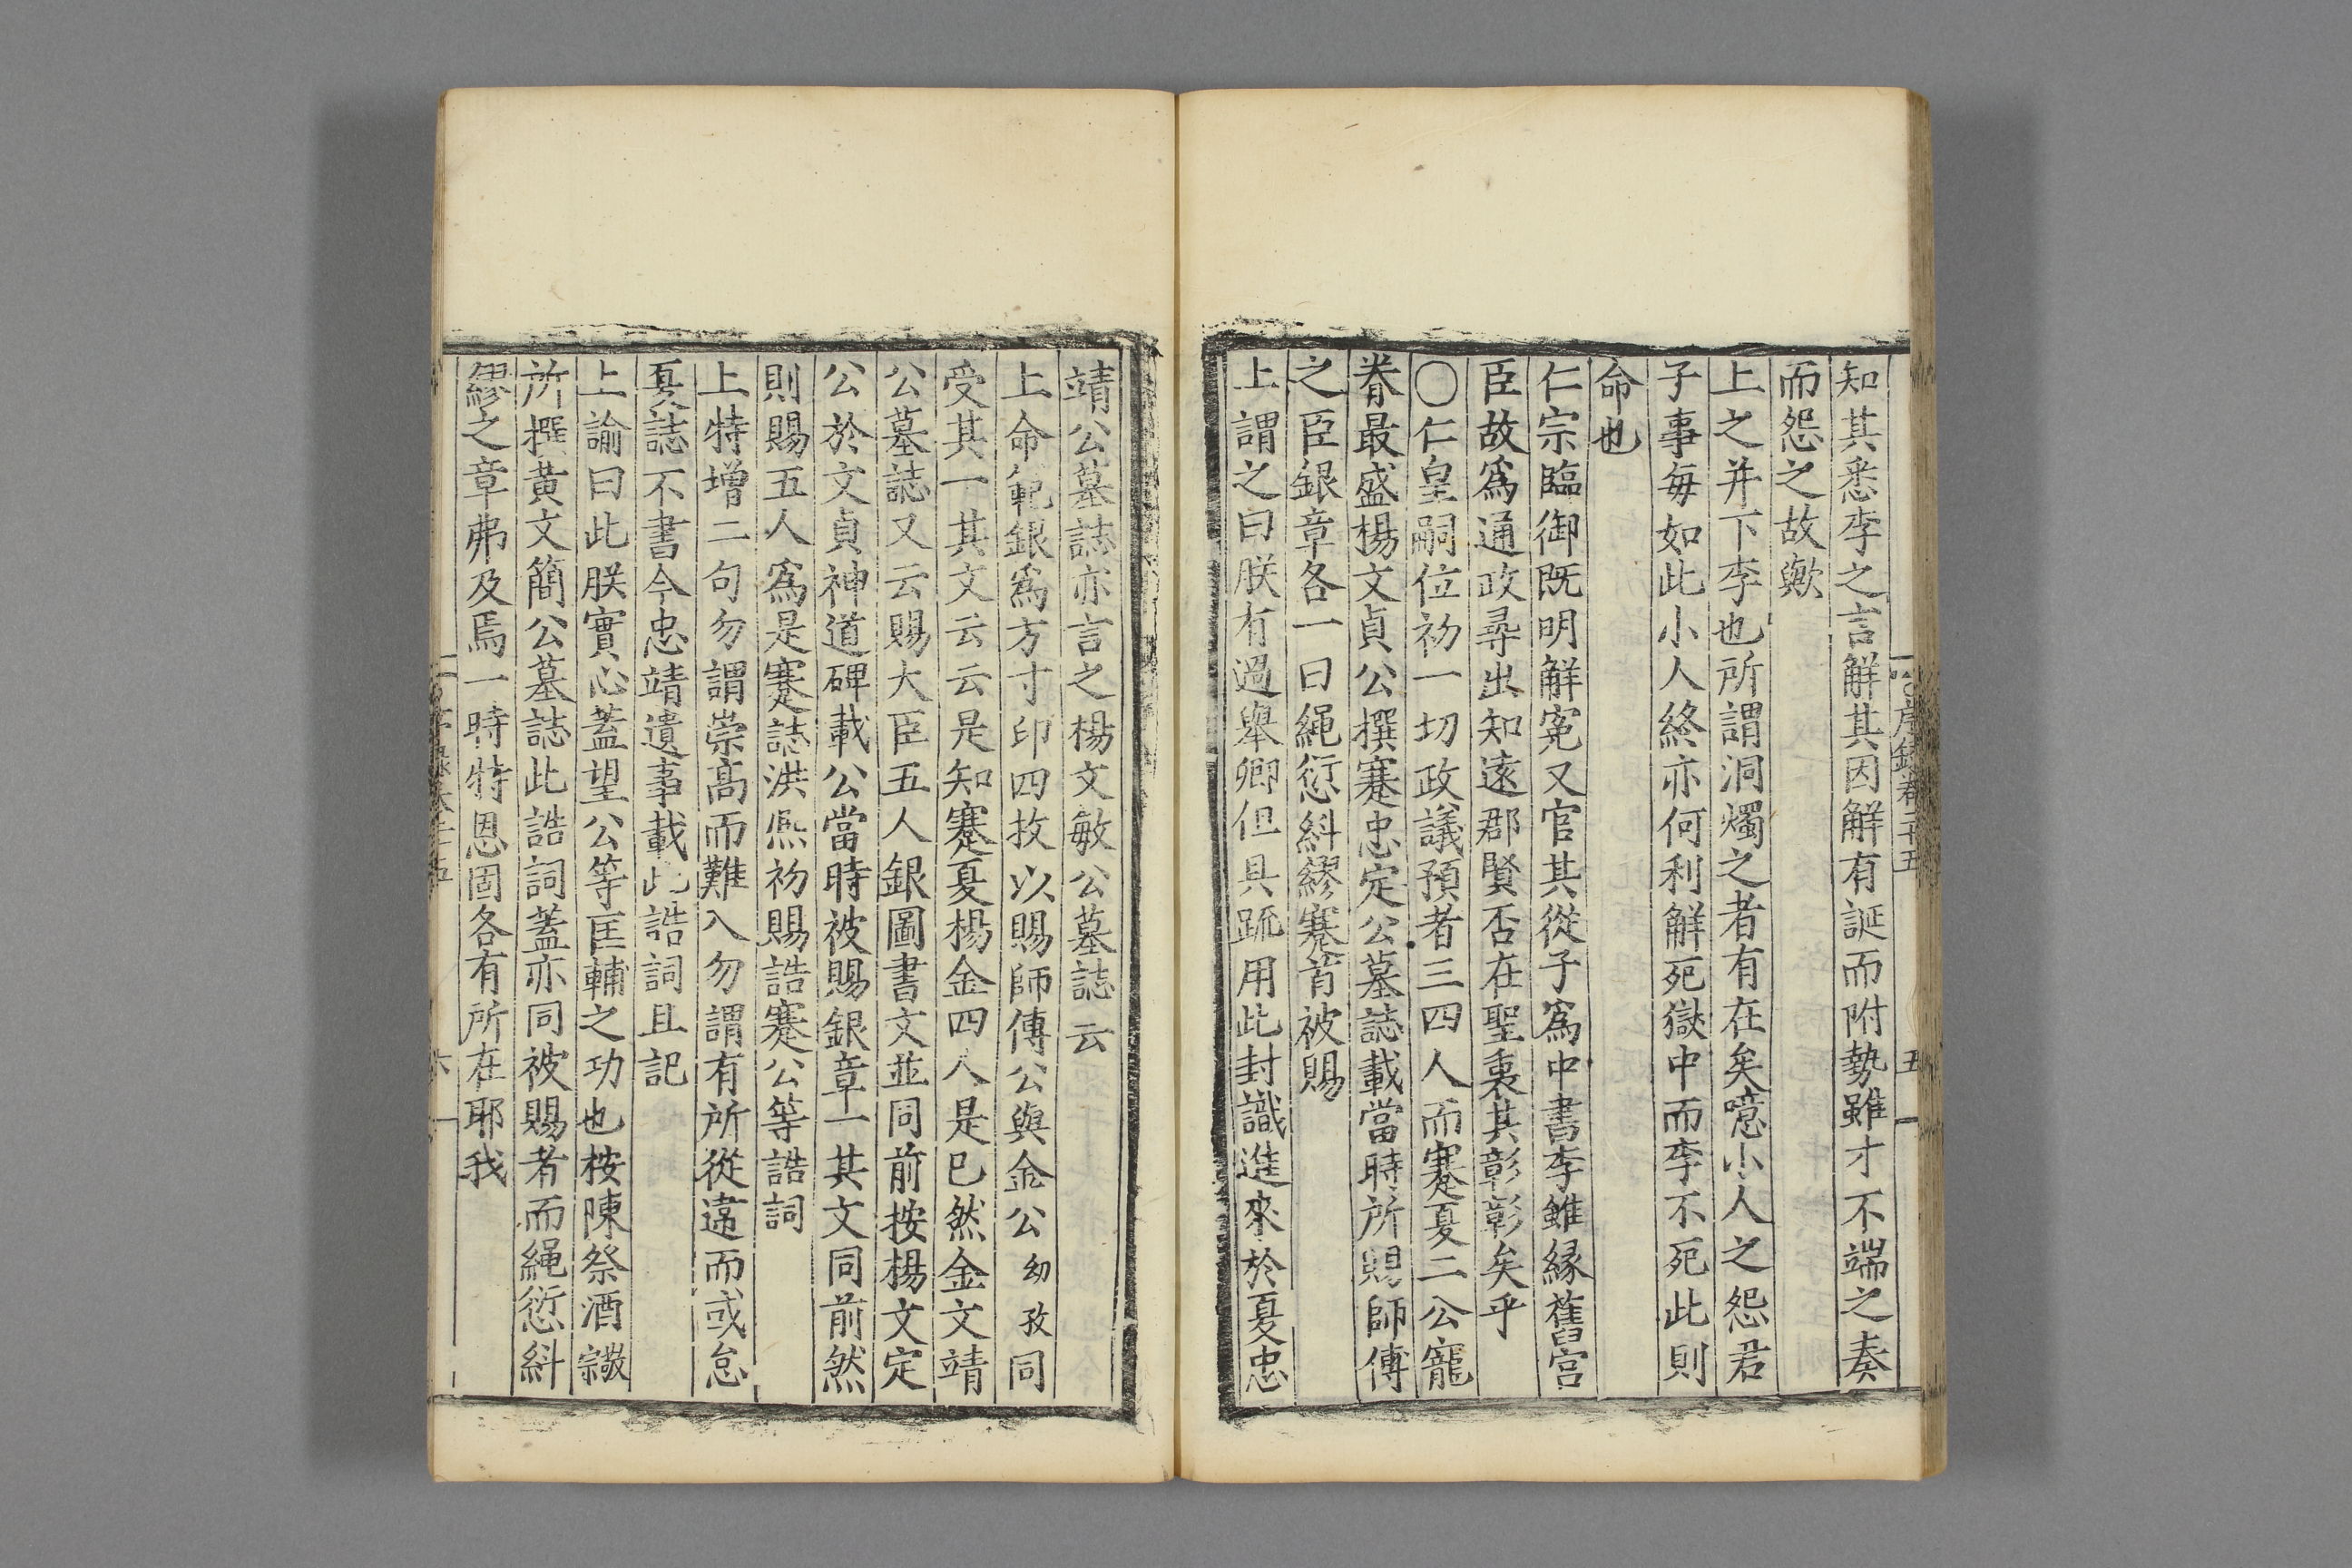 知其悉李之言解其因解有誕而附勢雖才不端之奏
而怨之故歟
上之并下李也所謂洞燭之者有在矣噫小人之怨君
子事每如此小人終亦何利解死獄中而李不死此則
命也
仁宗臨御既明解寃又官其從子爲中書李雖縁舊宫
臣故爲通政尋出知遠郡賢否在聖裏其彰彰矣乎
〇仁皇嗣位初一切政議預者三四人而蹇夏二公寵
眷最盛楊文貞公撰蹇忠定公墓誌載當時所賜師傅
之臣銀章各一曰繩愆糾繆蹇首被賜
上謂之曰朕有過舉卿但具䟽用此封識進來於夏忠
靖公墓誌亦言之楊文敏公墓誌云
上命範銀爲方寸印四枚以賜師傅公與金公幼孜同
受其一其文云云是知蹇夏楊金四人是已然金文靖
公墓誌又云賜大臣五人銀圖書文並同前按楊文定
公於文貞神道碑載公當時被賜銀章一其文同前然
則賜五人爲是蹇誌洪熈初賜誥蹇公等誥詞
上特增二句勿謂崇高而難入勿謂有所從違而或怠
夏誌不書今忠靖遺事載此誥詞且記
上諭曰此朕實心蓋望公等匡輔之功也按陳祭酒敬宗
所撰黄文簡公墓誌此誥詞蓋亦同被賜者而繩愆糾
繆之章弗及焉一時特恩固各有所在耶我
五
六